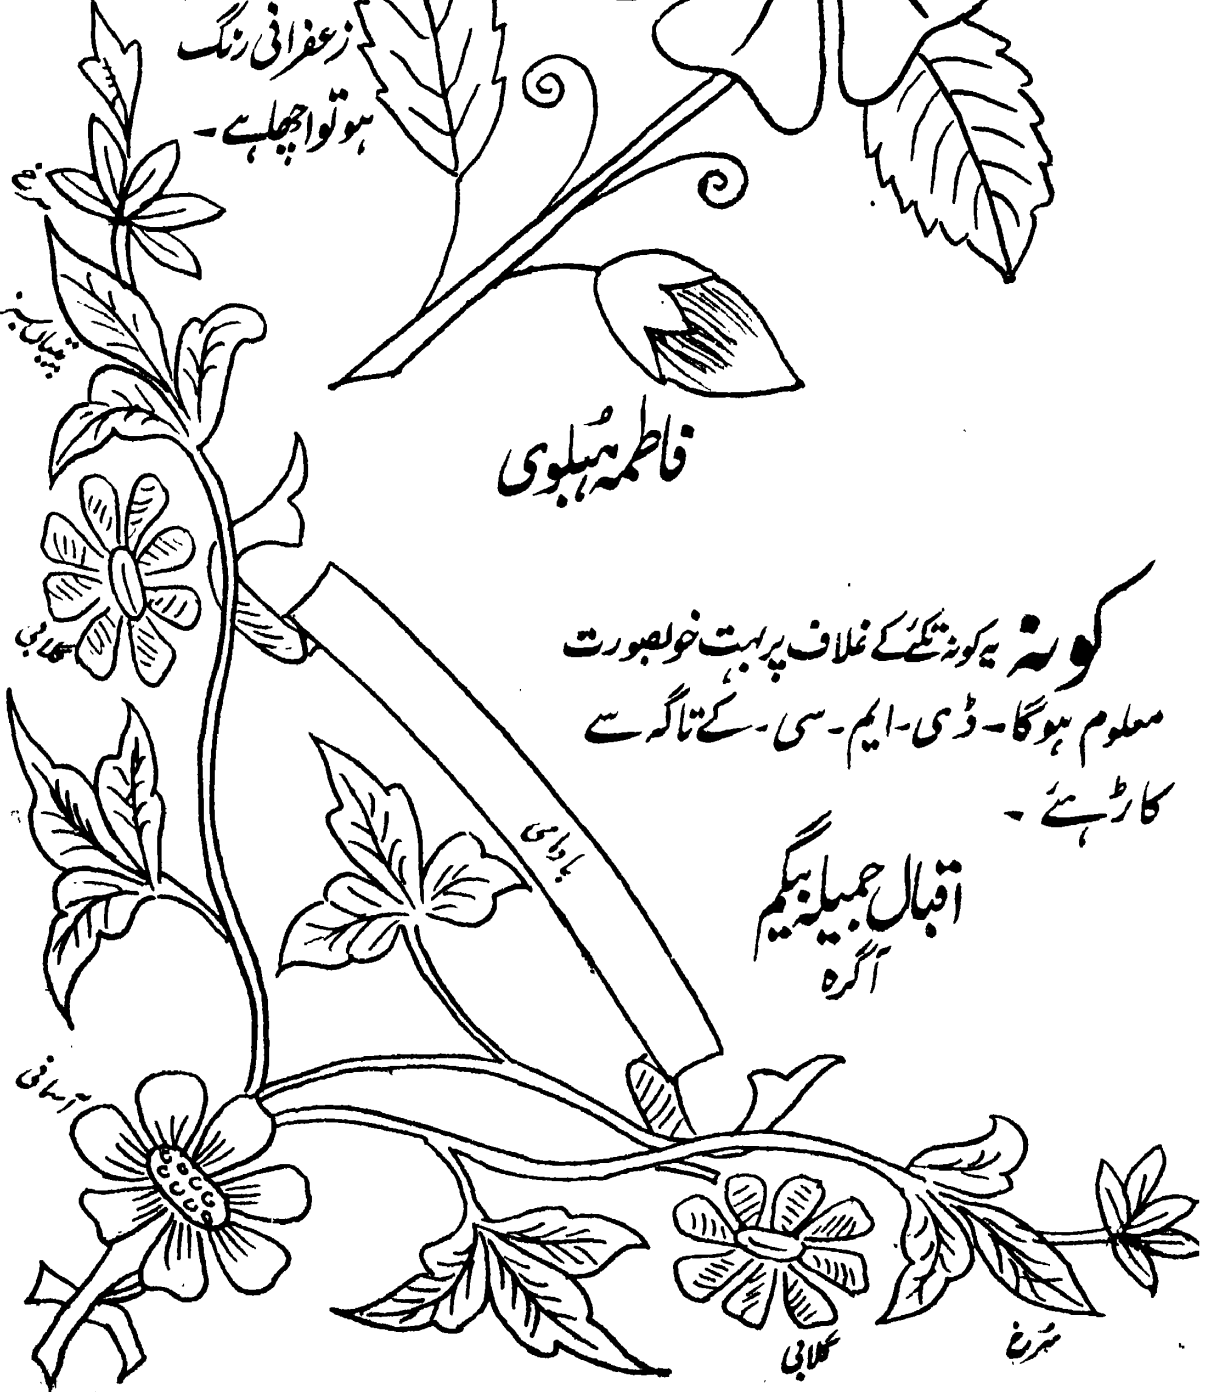 زعفرانی رنگ
ہو تو اچھا ہے ۔
سرخ
پتیاں سبز
فاطمہ ہبلوی
گلابی
کونہ یہ کونہ تکئے کے غلاف پر بہت خوبصورت
معلوم ہوگا ۔ ڈی ۔ ایم ۔ سی ۔ کے تاگہ سے
کاڑہئے ۔
بادامی
اقبال جمیلہ بیگم
آگرہ
آسمانی
گلابی
سُرخ